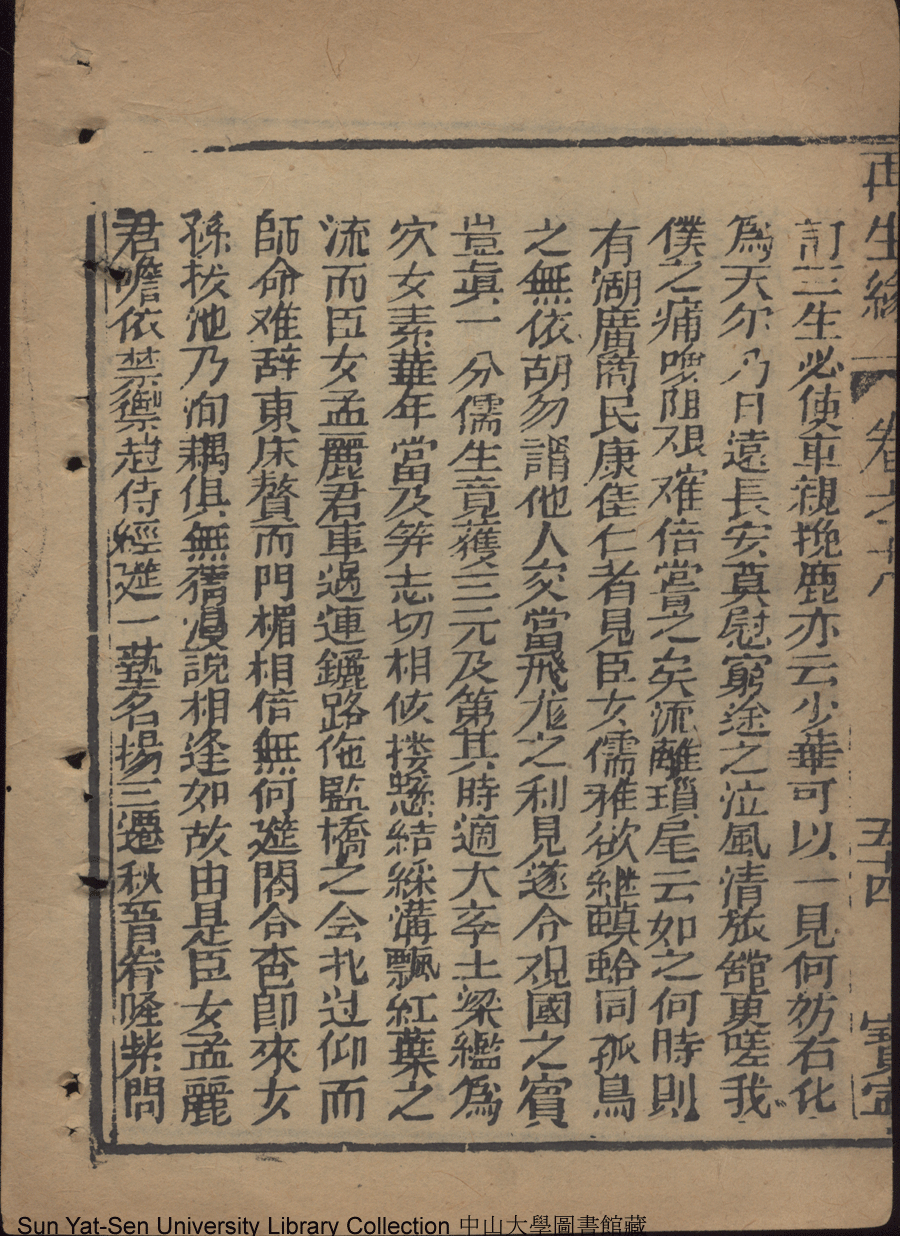 再生緣 卷之十八 五十四 寶寧
訂三生必使車親挽鹿亦云少華可以一見何妨石化
為天尔乃日遠長安莫慰窮途之泣風清旅舘更嗟我
僕之痡喚阻艰难倍嘗之矣流離瑣尾云如之何時則
有湖廣啇民康信仁者見臣女儒雅欲継蟘蛤同孤鳥
之無依胡勿謂他人父當飛龙之利見遂令观國之賓
豈真一分儒生竟獲三元及第其時適大孛士梁鑑為
穴女素華年當及笄志切相攸搂懸結綵溝飄紅葉之
流而臣女孟麗君車過運鑣路佹監橋之会扎过仰而
師命难辞東床贅而門楣相倍無何遊閤合杳即來女
孫拔池乃洵耦俱無㿂漫說相逢如故由是臣女孟麗
君瞻依禁籞趍侍經遊一藝名揚三遷秩晉眷隆紫問
Sun Yat-Sen University Library Collection 中山大學圖書館藏